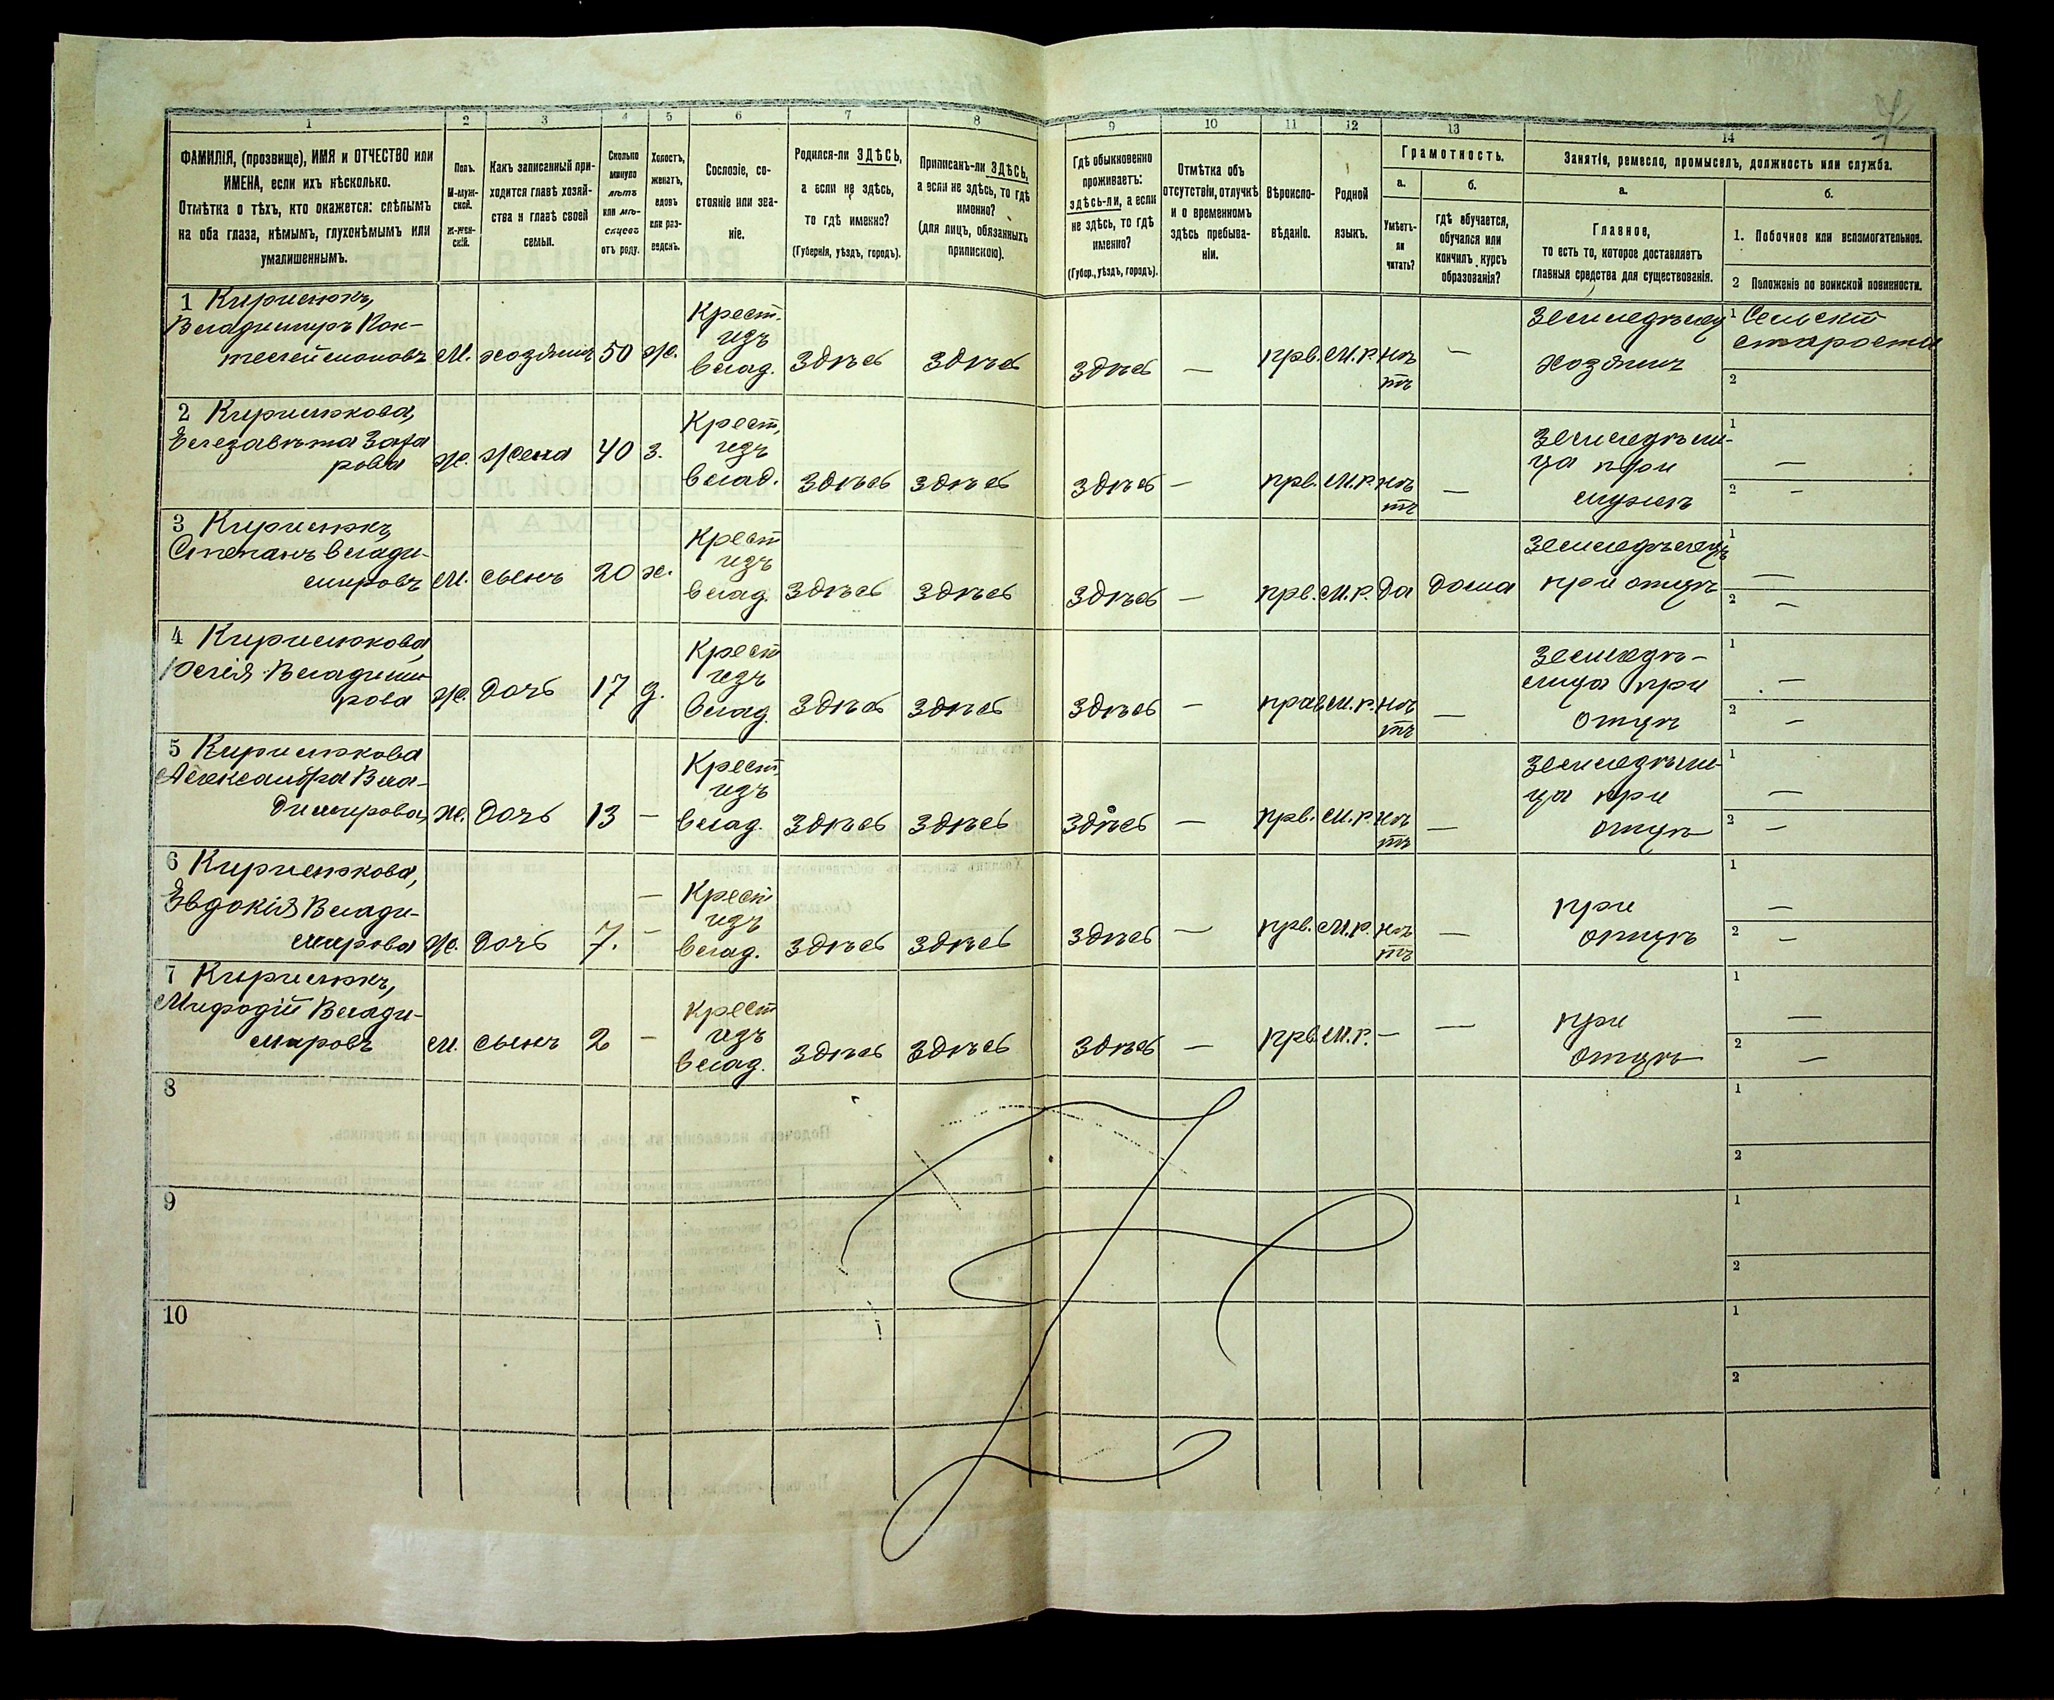 1 2 3 4 5 6 7 8 9 10 11 12 13 14
ФАМИЛІЯ, (прозвище), ИМЯ и ОТЧЕСТВО или
ИМЕНА, если ихъ нѣсколько.
Отмѣтка о тѣхъ, кто окажется: слѣпымъ
на оба глаза, нѣмымъ, глухонѣмымъ или
умалишеннымъ.
Полъ.
М-муж-
ской.
Ж-жен-
скій.
Какъ записанный при-
ходится главѣ хозяй-
ства и главѣ своей
семьи.
Сколько
минуло
лѣтъ
или мѣ-
сяцевъ
отъ роду.
Холостъ,
женатъ,
вдовъ
или раз-
веденъ.
Сословіе, со-
стояніе или зва-
ніе.
Родился-ли ЗДѢСЬ,
а если не здѣсь,
то гдѣ именно?
(Губернія, уѣздъ, городъ).
Приписанъ-ли ЗДѢСЬ,
а если не здѣсь, то гдѣ
именно?
(для лицъ, обязанныхъ
припискою).
Гдѣ обыкновенно
проживаетъ:
здѣсь-ли, а если
не здѣсь, то гдѣ
именно?
(Губер., уѣздъ, городъ).
Отмѣтка объ
отсутствіи, отлучкѣ
и о временномъ
здѣсь пребыва-
ніи.
Вѣроиспо-
вѣданіе.
Родной
языкъ.
Грамотность.
а.
Умѣетъ-
ли
читать?
б.
гдѣ обучается,
обучался или
кончилъ курсъ
образованія?
Занятіе, ремесло, промыселъ, должность или служба.
а.
Главное,
то есть то, которое доставляетъ
главныя средства для существованія.
б.
1. Побочное или вспомогательное.
2 Положеніе по воинской повинности.
1 Кирилюкъ,
Владимиръ
м. хозяинъ 50 ж.
Крест.
изъ
влад.
здѣсь здѣсь здѣсь — прв. м.р. нѣ
тъ
—
хозяинъ
1 Сельскій
староста
2
2 Кирилюкова,
Елезавѣта Заха
рова
ж. жена 40 з.
Крест,
изъ
влад.
здѣсь здѣсь здѣсь — прв. м.р. нѣ
тъ
—
земледѣли-
ца при
мужѣ
1 —
2 —
3 Кирилюкъ,
Степанъ Влади-
мировъ
м. сынъ 20 х.
Крест
изъ
влад.
здѣсь здѣсь здѣсь — прв. м.р. да дома
земледѣлецъ
при отцѣ
1 —
2 —
4 Кирилюкова,
Юлія Владими
рова
ж. дочь 17 д.
Крест
изъ
влад.
здѣсь здѣсь здѣсь — прав м.р. нѣ
тъ
—
земледѣ-
лица при
отцѣ
1 —
2 —
5 Кирилюкова
Александра Вла-
димирова,
ж. дочь 13 —
Крест,
изъ
влад.
здѣсь здѣсь здѣсь — прв. м.р. нѣ
тъ
—
земледѣли-
ца при
отцѣ
1 —
2 —
6 Кирилюкова,
Евдокія Влади-
мирова
ж. дочь 7. —
Крест
изъ
влад.
здѣсь здѣсь здѣсь — прв. м.р. нѣ
тъ
—
при
отцѣ
1 —
2 —
7 Кирилюкъ,
Мифодій Влади-
мировъ
м. сынъ 2 —
Крест
изъ
влад.
здѣсь здѣсь здѣсь — прв. м.р. — —
при
отцѣ
1 —
2 —
8
1
2
9
1
2
10
1
2